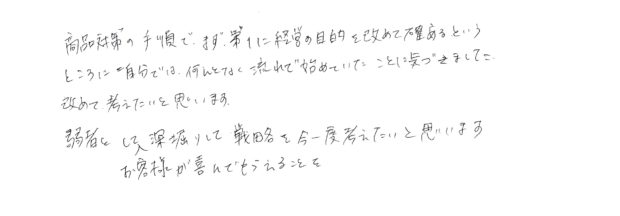 商品対策の手順で、まず、第1に経営の目的を改めて確あるという
ところに自分では、何んとなく流れで始めていたことに気づきました
改めて考えたいと思います
弱者として深掘りして戦略を今一度考えたいと思います
お客様が喜んでもらえることを